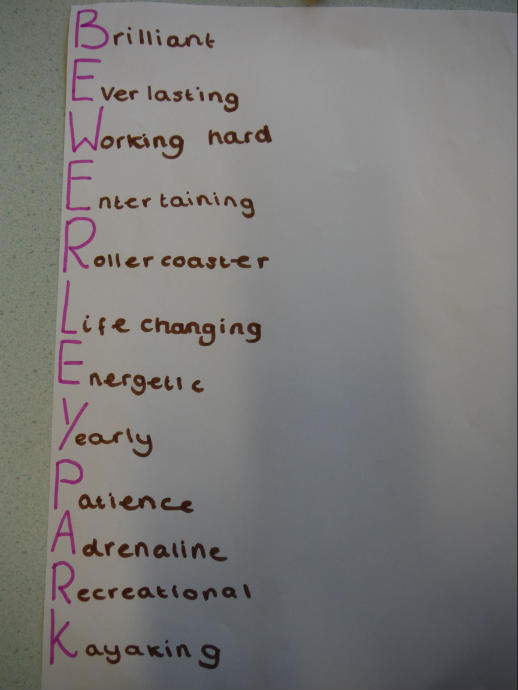 Brilliant
Everlasting
Working hard
Entertaining
Rollercoaster
Life changing
Energetic
Yearly
Patience
Adrenaline
Recreational
Kayaking